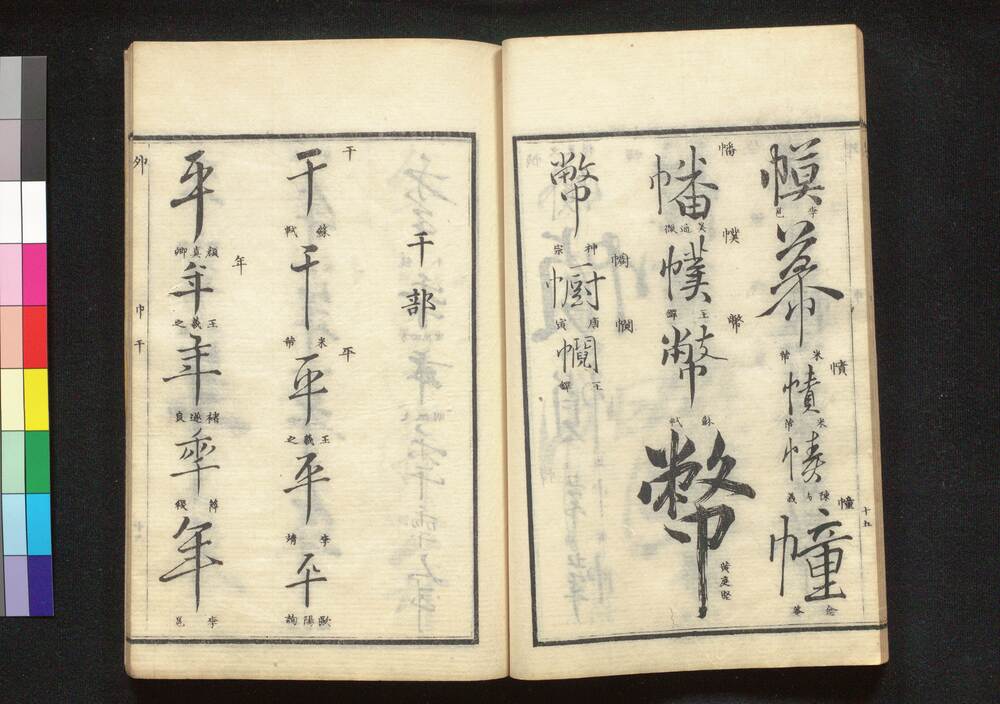 幙 李邕
幕 米芾
幘
幘 米芾
幘 陳与義
幢
幢
十五
幡
幡 吳通微
幞
幞 王鐸
幣
幣 蘇軾
幣 黄庭堅
幣 神宗
幮
幮 唐寅
幱 王鐸
干部
干
干 蘇軾
干 米芾
平
平 王羲之
平 李靖
平 歐陽詢
平 顔真卿
年
年 王羲之
年 褚遂良
年 薛稷
年 李邕
巾干